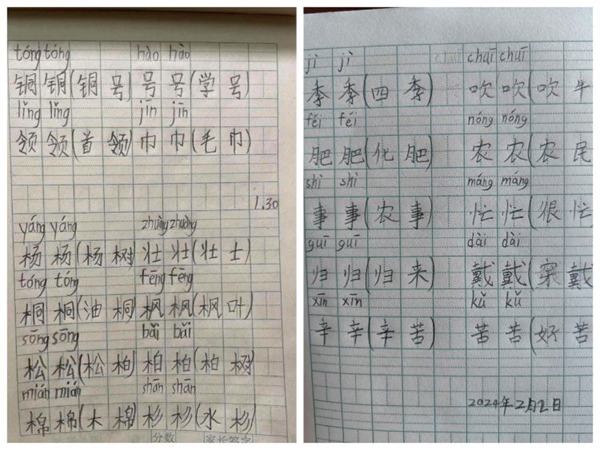 tóng tóng hào hào
铜 铜 (铜 号) 号 号 (学 号)
lǐng lǐng jīn jīn
领 领 (首 领) 巾 巾 (毛 巾)
1.30
yáng yáng zhuàng zhuàng
杨 杨 (杨 树) 壮 壮 (壮 士)
tóng tóng fēng fēng
桐 桐 (油 桐) 枫 枫 (枫 叶)
sōng sōng bǎi bǎi
松 松 (松 柏) 柏 柏 (柏 树)
mián mián shān shān
棉 棉 (木 棉) 杉 杉 (水 杉)
分数 家长签字
jì jì chuī chuī
季 季 (四 季) 吹 吹 (吹 牛
féi féi nóng nóng
肥 肥 (化 肥) 农 农 (农 民
shì shì máng máng
事 事 (农 事) 忙 忙 (很 忙
guī guī dài dài
归 归 (归 来) 戴 戴 (穿 戴
xīn xīn kǔ kǔ
辛 辛 (辛 苦) 苦 苦 (好 苦
2024年2月2日